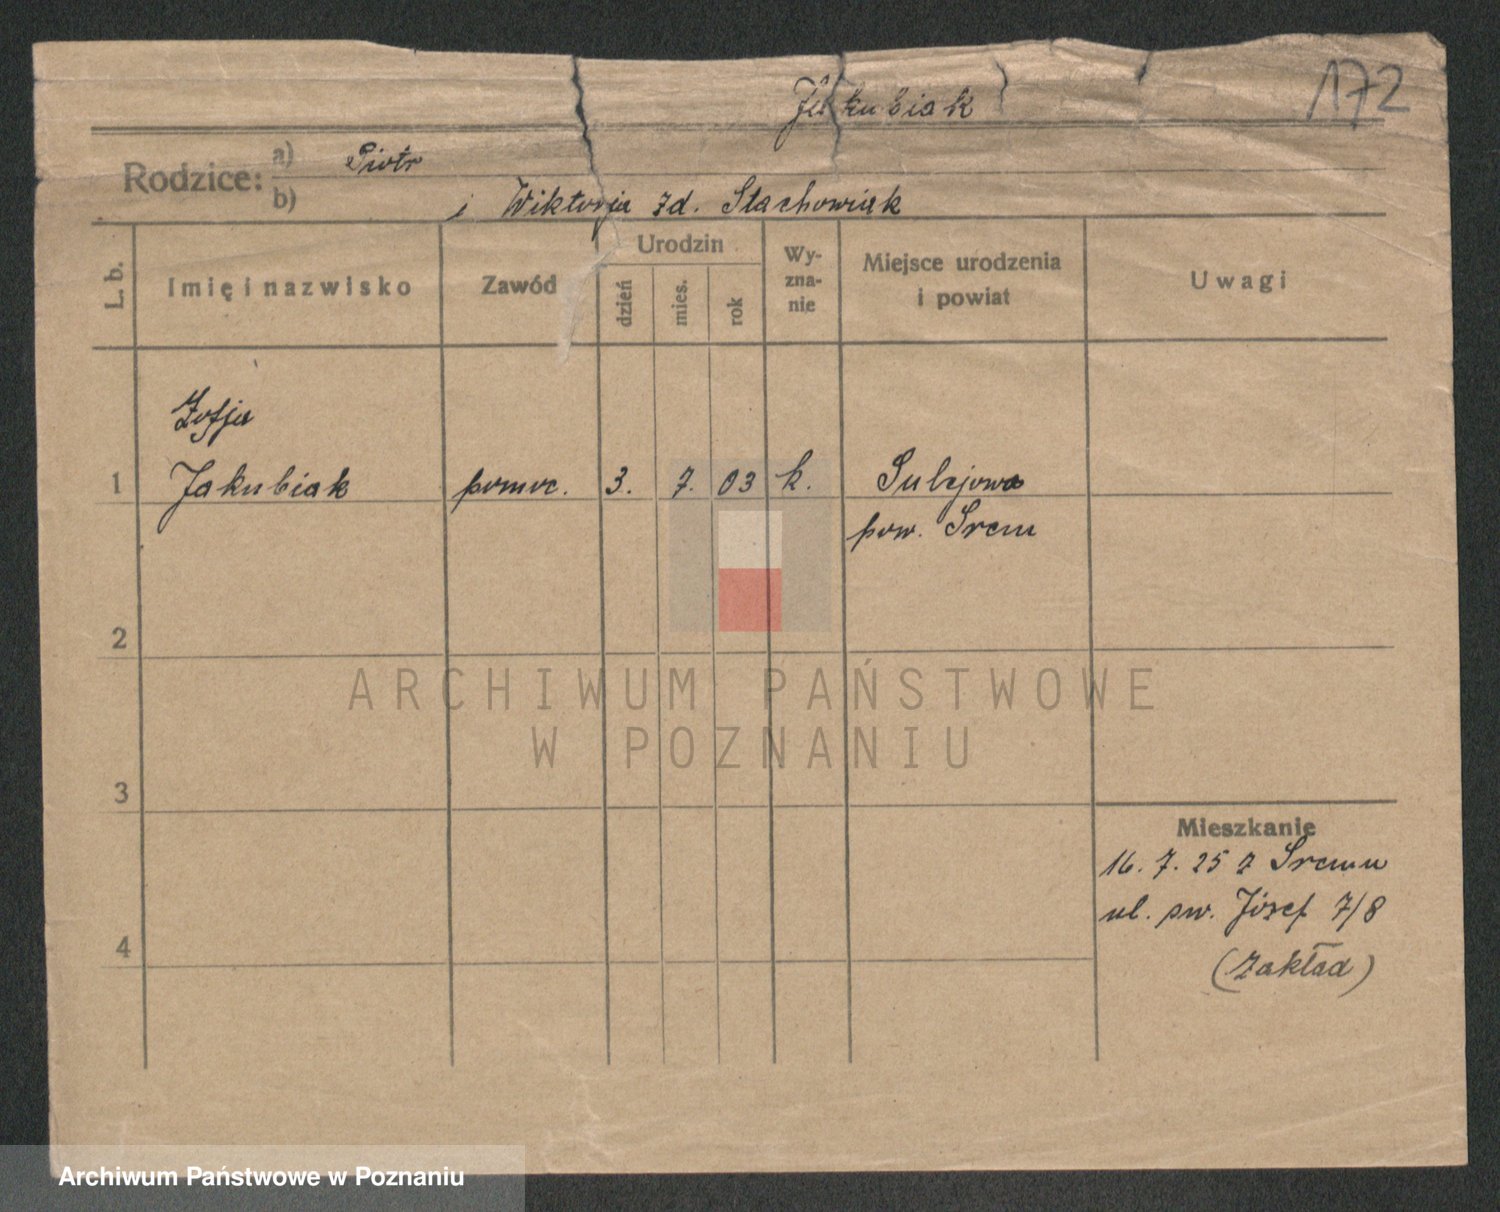 172
Jakubiak
Rodzice: a) Piotr
b) i Wiktorja zd. Stachowiak
L. b.
Imię i nazwisko
Zawód
Urodzin
dzień
mies.
rok
Wy-
zna-
nie
Miejsce urodzenia
i powiat
Uwagi
Zofja
1 Jakubiak pomoc. 3. 7. 03 k.
pow. Srem
2
3
4
Mieszkanie
16. 7. 25 z Sremu
ul. św. Józef 7/8
(Zakład)
ARCHIWUM PAŃSTWOWE
W POZNANIU
Archiwum Państwowe w Poznaniu